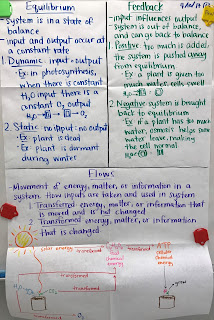 Equilibrium
-system is in a state of
balance
-input and output occur at
a constant rate
1. Dynamic: input = output
·Ex: in photosynthesis,
when there is constant
H₂O input there is a
constant O₂ output
2. Static: no input; no output
·Ex: plant is dead
·Ex: plant is dormant
during winter
Feedback
-input influences output
system is out of balance,
and can go back to balance
1. Positive: too much is added,
the system is pushed away
from equilibrium
·Ex: a plant is given too
much water; cells swell
2. Negative: system is brought
back to equilibrium
·Ex: if a plant has too much
water, osmosis helps some
water leave, making
the cell normal
Flows
Movement of energy, matter, or information in a
system. How inputs are taken and used in system
1. Transfered: energy, matter, or information that
is moved and is not changed
2. Transformed: energy, matter, or information
that is changed
solar energy
transformed
ATP
chemical
energy
transferred
transformed